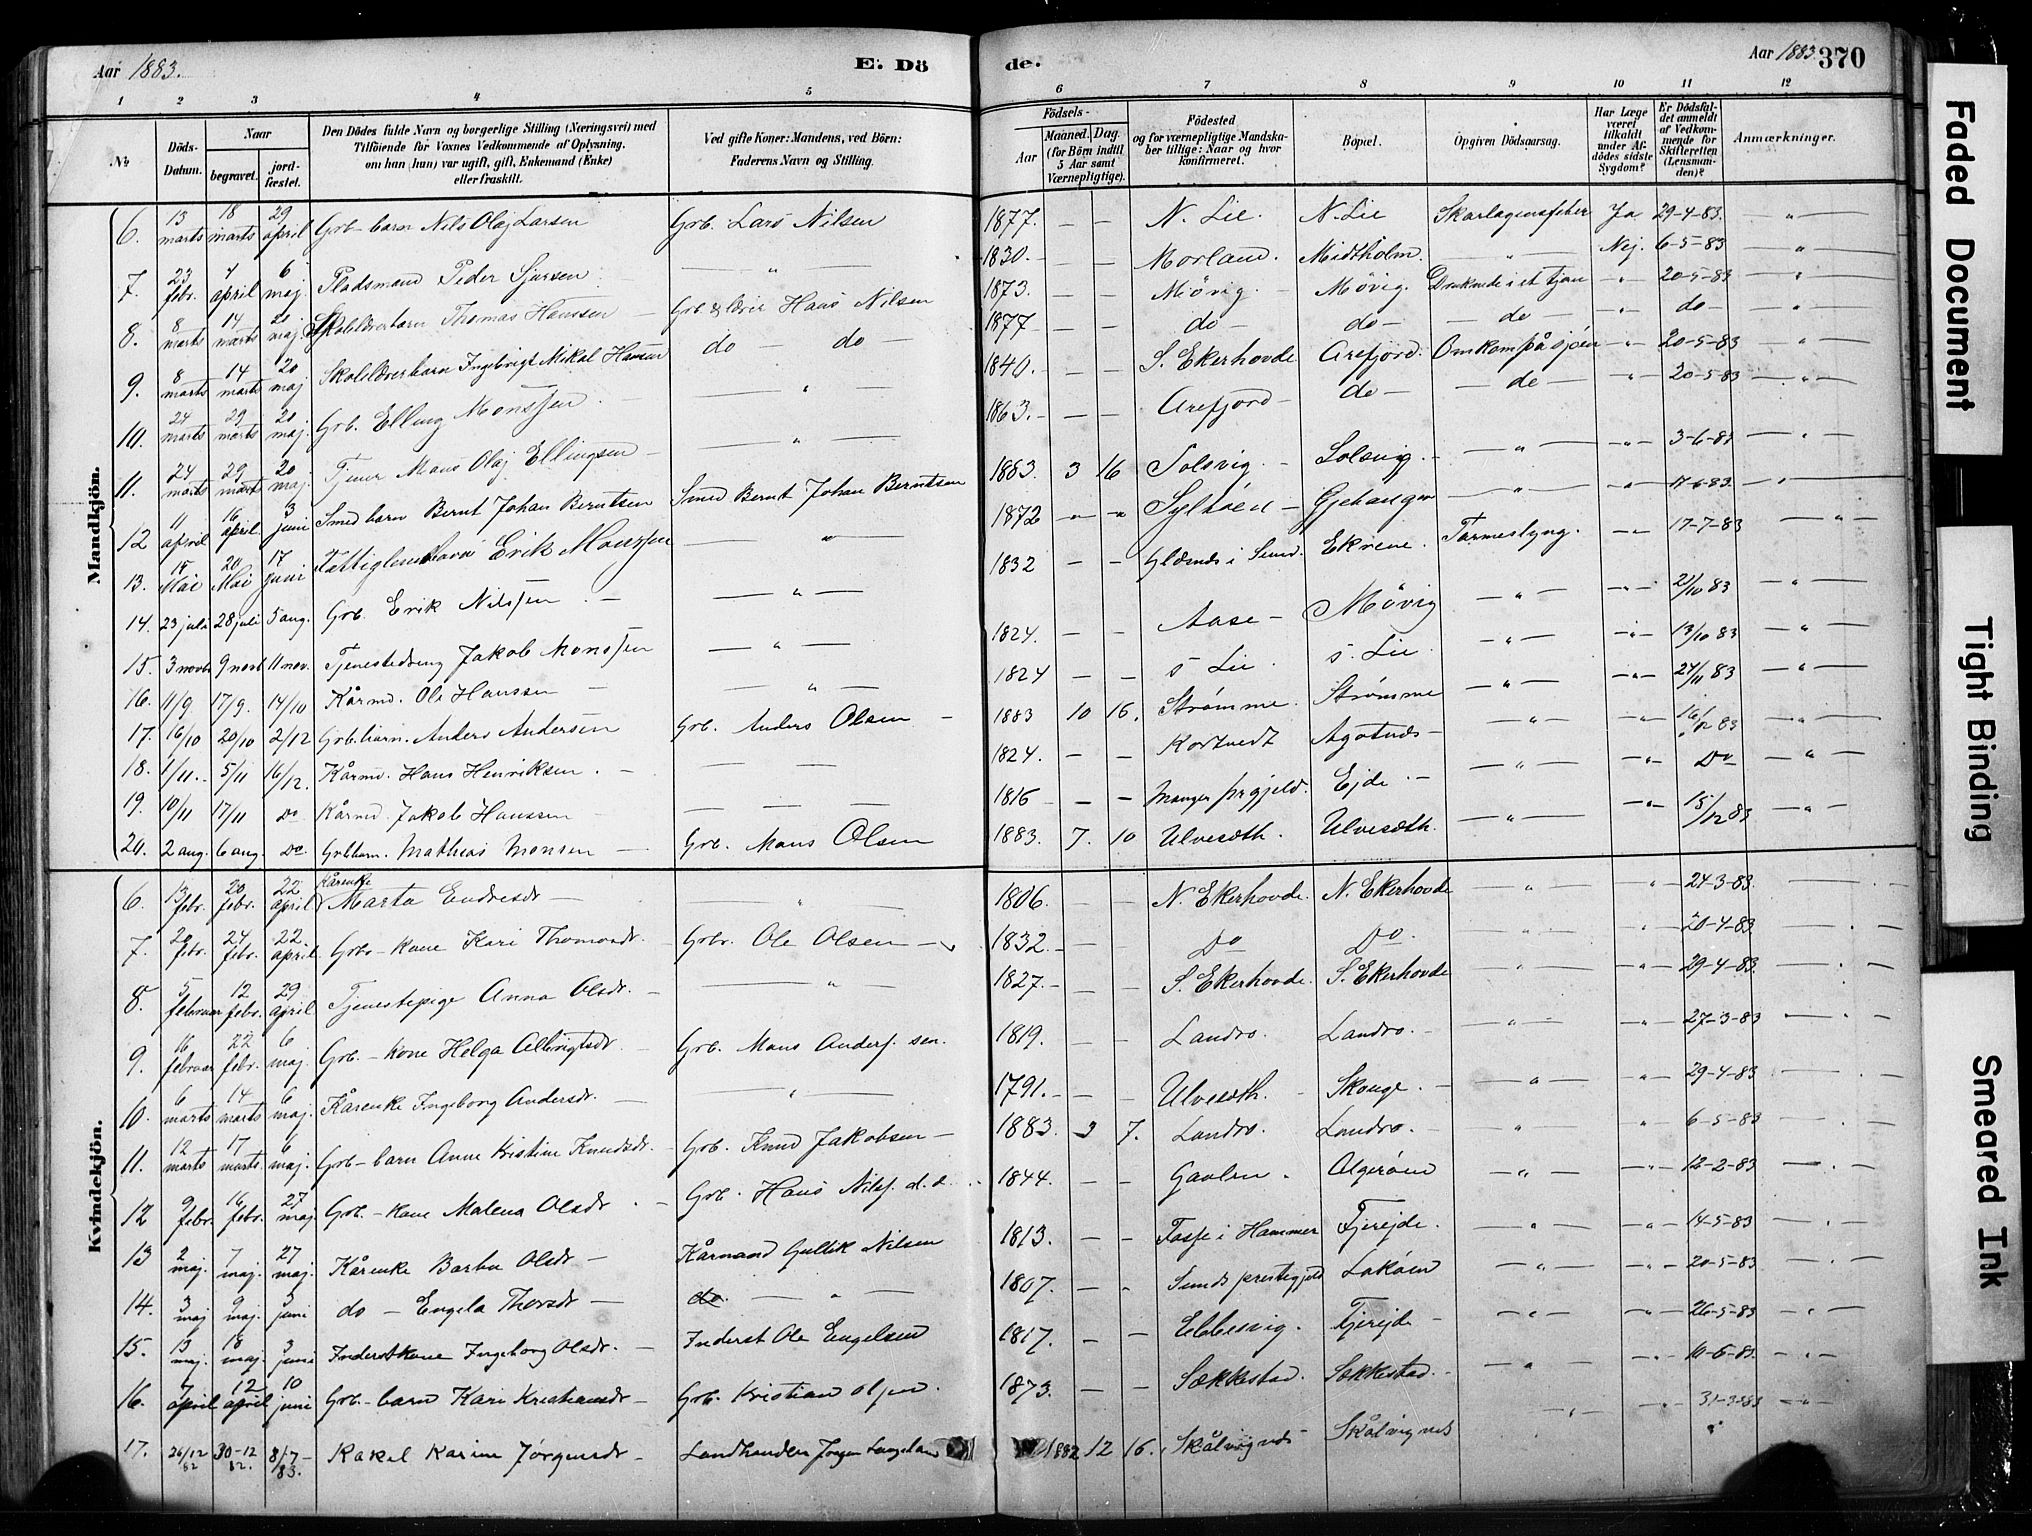 Aar 1883. E. Dö de. Aar 1883 370
1 2 3 4 5 6 7 8 9 10 11 12
No Döds-Datum. Naar begravet. jord-fæstet. Den Dödes fulde Navn og borgerlige Stilling (Næringsvei) med Tilföiende for Voxnes Vedkommende af Oplysning, om han (hun) var ugift, gift, Enkemand (Enke) eller fraskilt. Ved gifte Koner: Mandens, ved Börn: Faderens Navn og Stilling. Födsels- Aar Maaned. Dag. (for Börn indtil 5 Aar samt Værnepligtige). Födested og for værnepligtige Mandska-ber tillige: Naar og hvor konfirmeret. Bopæl. Opgiven Dödsaarsag. Har Læge været tilkaldt under Af-dödes sidste Sygdom? Er Dödsfal-det anmeldt af Vedkom-mende for Skifteretten (Lensman-den)? Anmærkninger.
Mandkjön.
6. 13 marts 18 marts 29 april Grb-barn Nils Olaj Larsen Grb. Lars Nilsen 1877. — — N. Lie. N. Lie Skarlagensfeber Ja 29-4-83. "
7. 23 febr. 4 april 6 maj Pladsmand Peder Sjursen " 1830. — — Morland. Midtholm. " Nej. 6-5-83 "
8. 8 marts 14 marts 20 maj. Skolelærerbarn Thomas Hanssen Hans Nilsen 1873. — — Møvig. Møvig. Druknede i et tjern " 20-5-83 "
9. 8 marts 14 marts 20 maj Skolelærerbarn Ingebrigt Mikal Hansen do do 1877 — — do do do " do "
10. 24 marts 29 marts 20 maj. Grb. Elling Monssen. " 1840. — — S. Ekerhovde Arefjord. Omkom på sjøen " 20-5-83 "
11. 24 marts 29 marts 20 maj. Tjener Mons Olaj Ellingsen " 1863. — — Arefjord do do " 20-5-83 "
12 11 april 16 april 3 juni Smed barn Bernt Johan Berntsen Smed Bernt Johan Berntsen 1883 3 16 Solsvig. Solsvig " " 3-6-83 "
13. 15 Mai 20 Mai 17 juni Erik Monssen " 1872 " " Syltøen " " 17-6-83. "
14. 23 juli 28 juli 5 aug. Grb. Erik Nilssen. " 1832 — — i Sund. Ekrene. Tarmeslyng. " 17-7-83 "
15. 3 novb 9 novb 11 nov. Tjenestedreng Jakob Monssen " 1824. — — Aase Møvig " " 21/10 83 "
16. 11/9 17/9. 14/10 Kårmd. Ole Hanssen " 1824 — — S. Lie. S. Lie " " 13/10 83 "
17. 16/10 20/10 2/12 Grb.barn. Anders Andersen Grb. Anders Olsen 1883 10 16. Strømme. Strømme " " 24/11 83 "
18. 1/11. 5/11 16/12. Kårmd. Hans Henriksen. 1824. — — Kortvedt Agotnes " " 16/12 83 "
19. 10/11 17/11 Do Kårmd. Jakob Hanssen 1816 — — Manger prgjeld. Ejde " " Do "
20. 2 aug. 6 aug. Do Grbbarn. Mathias Monsen Grb. Mons Olsen 1883. 7. 10 Ulvesæth. Ulvesæth. " " 15/12 83 "
Kvindekjön.
6. 13 febr. 20 febr. 22 april Kårenke Marta Endresdr " 1806. — — N. Ekerhovde. N. Ekerhovde " " 24-3-83.
7. 20 febr. 24 febr. 22 april Grb-kone Kari Thomasdr. Grb. Ole Olsen 1832. — Do Do. " " 20-4-83
8. 5 februar 12 febr. 29 april Tjenestepige Anna Olsdr. " 1827. — — S. Ekerhovde. S. Ekerhovde " " 29-4-83.
9. 16 februar 22 febr. 6 maj. Grb-kone Helga Grb. Mons Anders. sen. 1819. — — Landro. Landro. " " 27-3-83
10. 6 marts 14 marts 6 maj. Kårenke Ingeborg Andersdr. " 1791. — — Ulvesæth. Skouge. " " 29-4-83
11. 12 marts 17 marts. 6 maj. Grb-barn Anne Kristine Knudsdr. Grb. Knud Jakobsen 1883. 3 7. Landro. Landro. " " 6-5-83
12 9 febr. 16 febr. 27 maj. Grb-kone Malena Olsdr. Grb. Hans Nils. 1844. — — Gavlen. Algerøen " " 12-2-83
13 2 maj. 7 maj. 27 maj. Kårenke Barbu Olsdr Kårmand Gullik Nilsen 1813. — — i Hammer Fjerejde. " " 14-5-83
14. 3 maj 9 maj. 3 juni do — Engela Thorsdr do. " 1807. — " Sunds prestegjeld " " 20-5-83
15. 13 maj. 18 maj. 3 juni Inderstkone Ingeborg Olsdr. Inderst Ole Engelsen 1817. — — Ebbesvig. Fjerejde " " 26-5-83
16. 7 april 12 april 10 juni Grb-barn Kari Kristiansdr Grb. Kristian Olsen. 1873. — — Sækkestad. Sækkestad. " " 10-6-83.
17. 26/12 82 30-12 82. 8/7-83. Rakel Karine Jørgensdr Landhandler Jørgen 1882 12 16. Skålvignes Skålvignes " " 31-3-83 "
Faded Document
Tight Binding
Smeared Ink